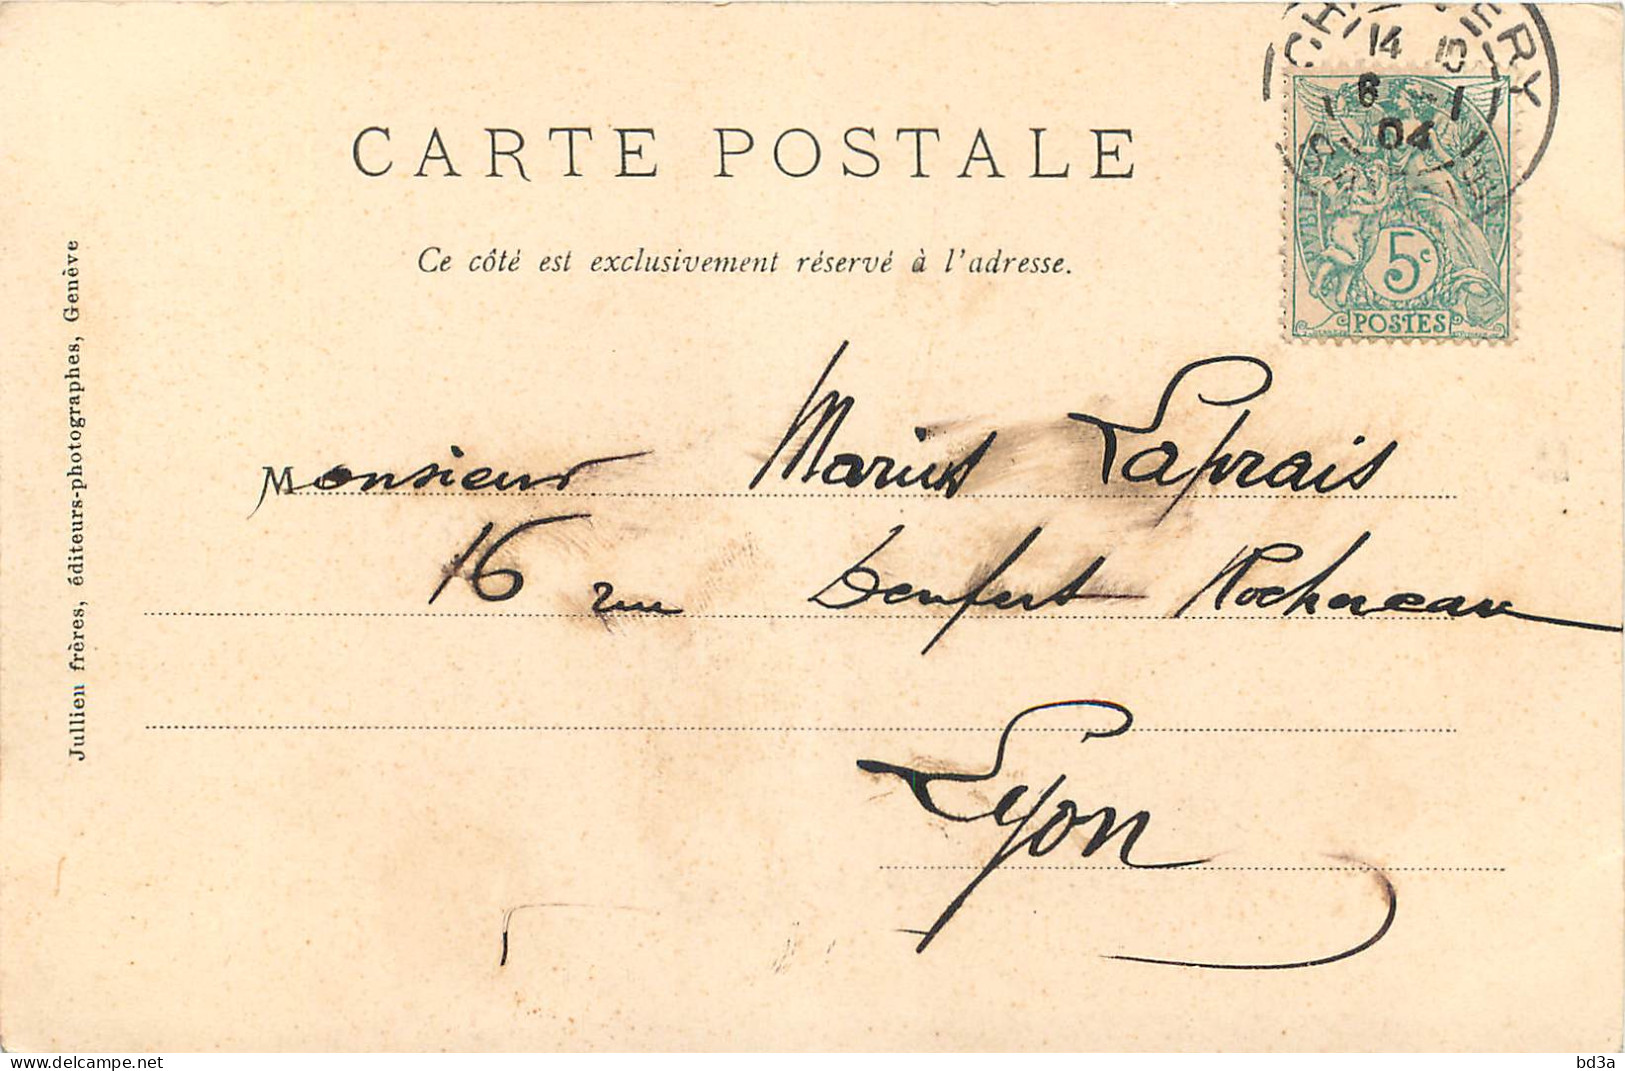 CARTE POSTALE
Ce côté est exclusivement réservé à l'adresse.
14 15
6 -1
04
5c
POSTES
Monsieur Marius Laprais
16 rue Denfert Rochereau
Lyon
Jullien frères, éditeurs-photographes, Genève
delcampe.net
bd3a